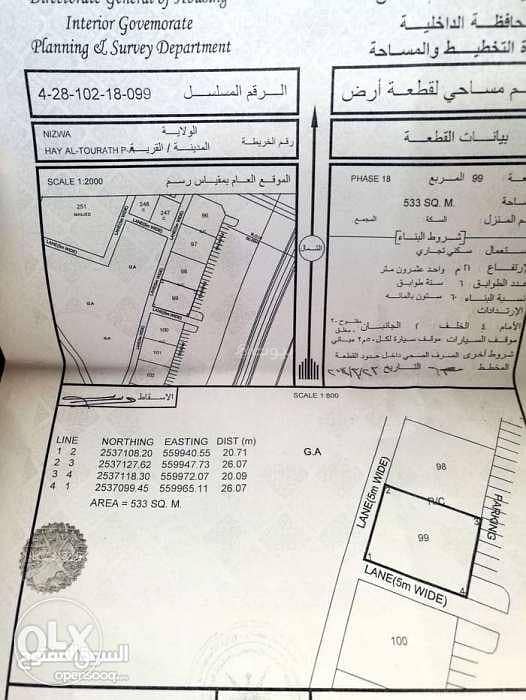 Directorate General of Housing
Interior Governorate
Planning & Survey Department
حافظة الداخلية
ة التخطيط والمساحة
4-28-102-18-099 الرقم المسلسل
م مساحي لقطعة أرض
NIZWA الولاية
HAY AL-TOURATH P-A المدينة / القرية
رقم الخريطة
بيانات القطعة
SCALE 1:2000 الموقع العام بمقياس رسم
251
248
247
96
97
98
99
100
101
102
LANE(5m WIDE)
LANE(5m WIDE)
LANE(5m WIDE)
G.A
G.A
الشمال
PHASE 18 المربع 99
533 SQ. M.
م المنزل السكة المجمع
شروط البناء
ستعمال سكني تجاري
رتفاع ٢١ م واحد عشرون متر
دد الطوابق ٦ ستة طوابق
سبة البناء ٦٠ ستون بالمائه
الإرتدادات
الأمام ٤ الخلف ٢ الجانبان
موقف السيارات موقف سيارة لكل
شروط أخرى الصرف الصحي داخل حدود القطعة
المخطط التاريخ
الاسقاط
SCALE 1:800
LINE NORTHING EASTING DIST (m)
1 2 2537108.20 559940.55 20.71
2 3 2537127.62 559947.73 26.07
3 4 2537118.30 559972.07 20.09
4 1 2537099.45 559965.11 26.07
AREA = 533 SQ. M.
G.A
98
R/C
99
100
1
2
3
4
LANE(5m WIDE)
LANE(5m WIDE)
PARKING
OLX
السوق المفتوح
opensooq.com